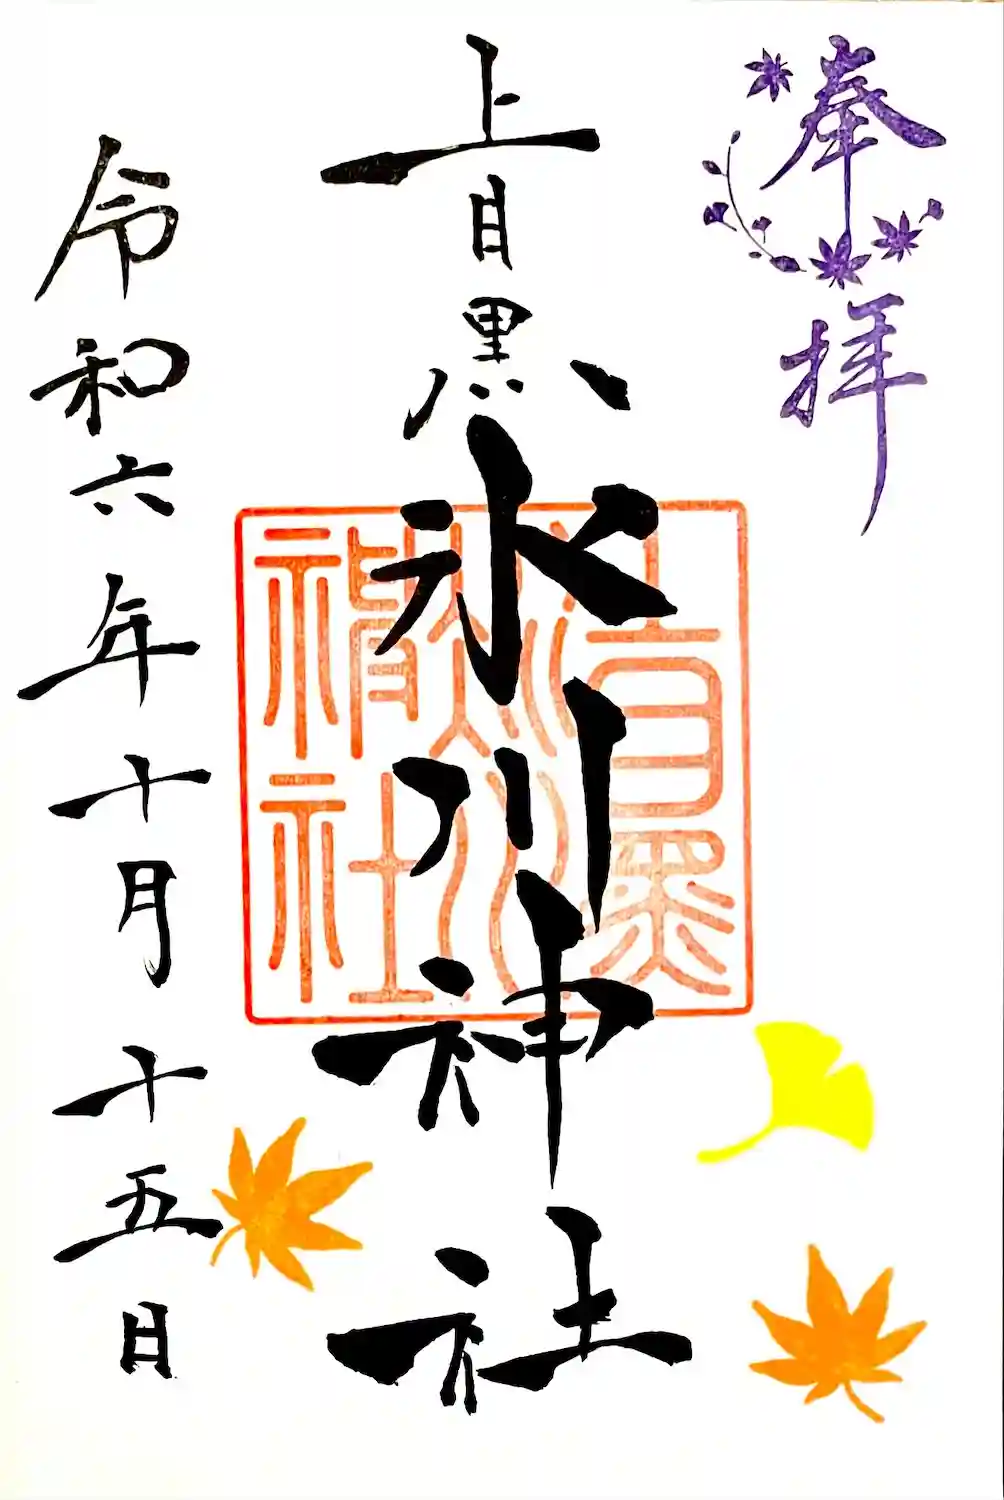 奉拝
上目黒氷川神社
上目黒
氷川
神社
令和六年十月十五日